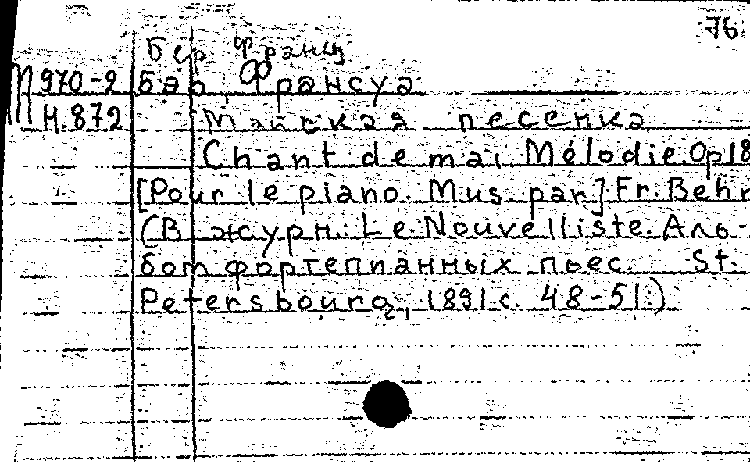 76.
Бер Франц
М 970-2 Бэр, Франсуа
Н.872 Майская песенка
Chant de mai Mélodie. Op 18
[Pour le piano. Mus. par] Fr. Behr
(В журн. Le Nouvelliste. Аль-
бом фортепианных пьес. St.
Petersbourg, 1891 с. 48-51.)